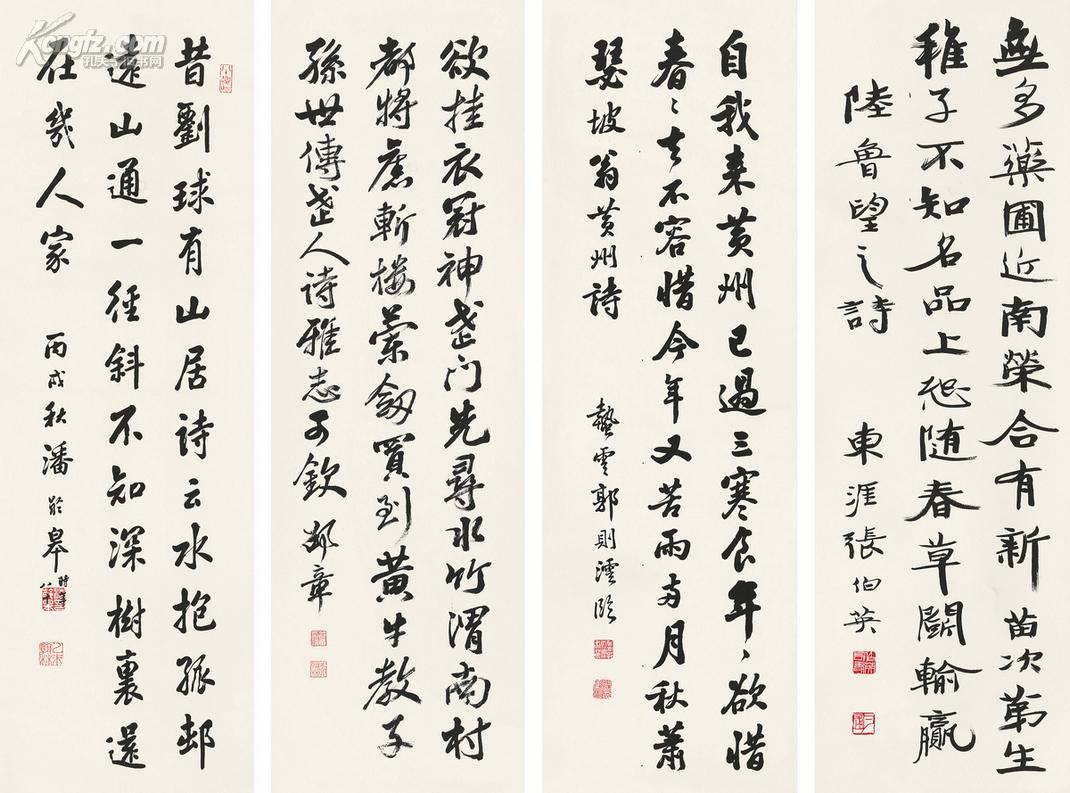 無多藥圃近南榮合有新苗次第生
稚子不知名品上恐随春草鬭輸贏
陸魯望之詩
東涯張伯英
自我来黄州已過三寒食年ミ欲惜
春ミ去不容惜今年又苦雨兩月秋蕭
瑟坡翁黄州詩
蟄雲郭則澐臨
欲挂衣冠神武门先尋水竹渭南村
都將舊斬樓蘭劔買到黄牛教子
孫世傳武人诗雅志可欽
邵章
昔劉球有山居詩云水抱孤邨
遠山通一徑斜不知深樹裏還
住幾人家
丙戌秋潘齡皋時年八十
Kongfz.com
孔夫子旧书网